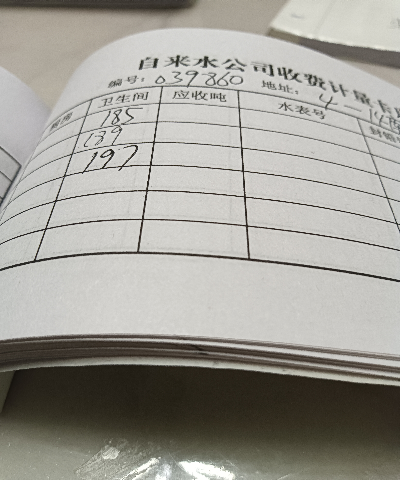 自来水公司收费计量卡
编号: 039860 地址: 4-14
卫生间 应收吨 水表号
185
189
197